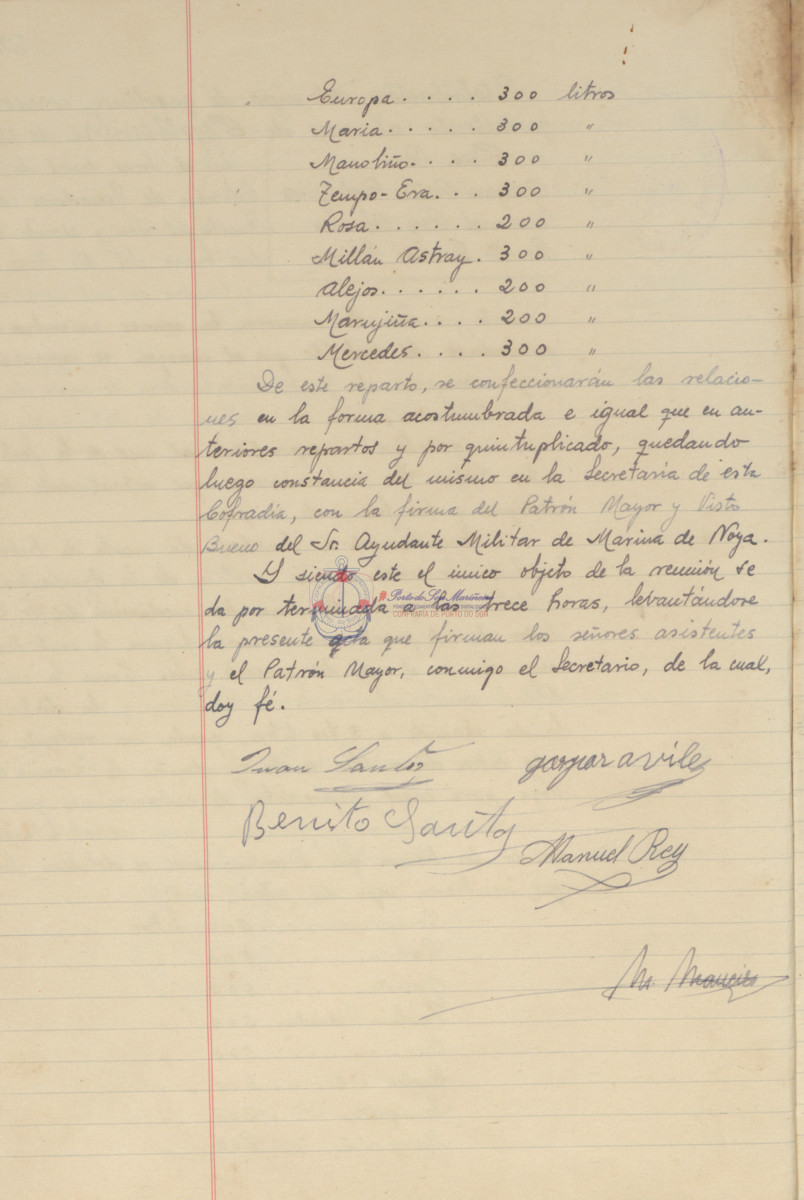 Europa . . . . 300 litros
Maria . . . . . 300 "
Manoliño . . . . 300 "
Tempo-Era . . . 300 "
Rosa . . . . . . 200 "
Millán Astray . 300 "
Alejos . . . . . . 200 "
Marujiña . . . . 200 "
Mercedes . . . . 300 "
De este reparto, se confeccionarán las relacio-
nes en la forma acostumbrada e igual que en an-
teriores repartos y por quintuplicado, quedando
luego constancia del mismo en la Secretaría de esta
Cofradía, con la firma del Patrón Mayor y Visto
Bueno del Sr. Ayudante Militar de Marina de Noya.
Y siendo este el único objeto de la reunión se
da por terminada a las trece horas, levantándose
la presente acta que firman los señores asistentes
y el Patrón Mayor, conmigo el Secretario, de la cual,
doy fé.
Porto do Son Mariñeiro
CONFRARÍA DE PORTO DO SON
Juan Santos
gaspar avile
Benito Santos
Manuel Rey
M.